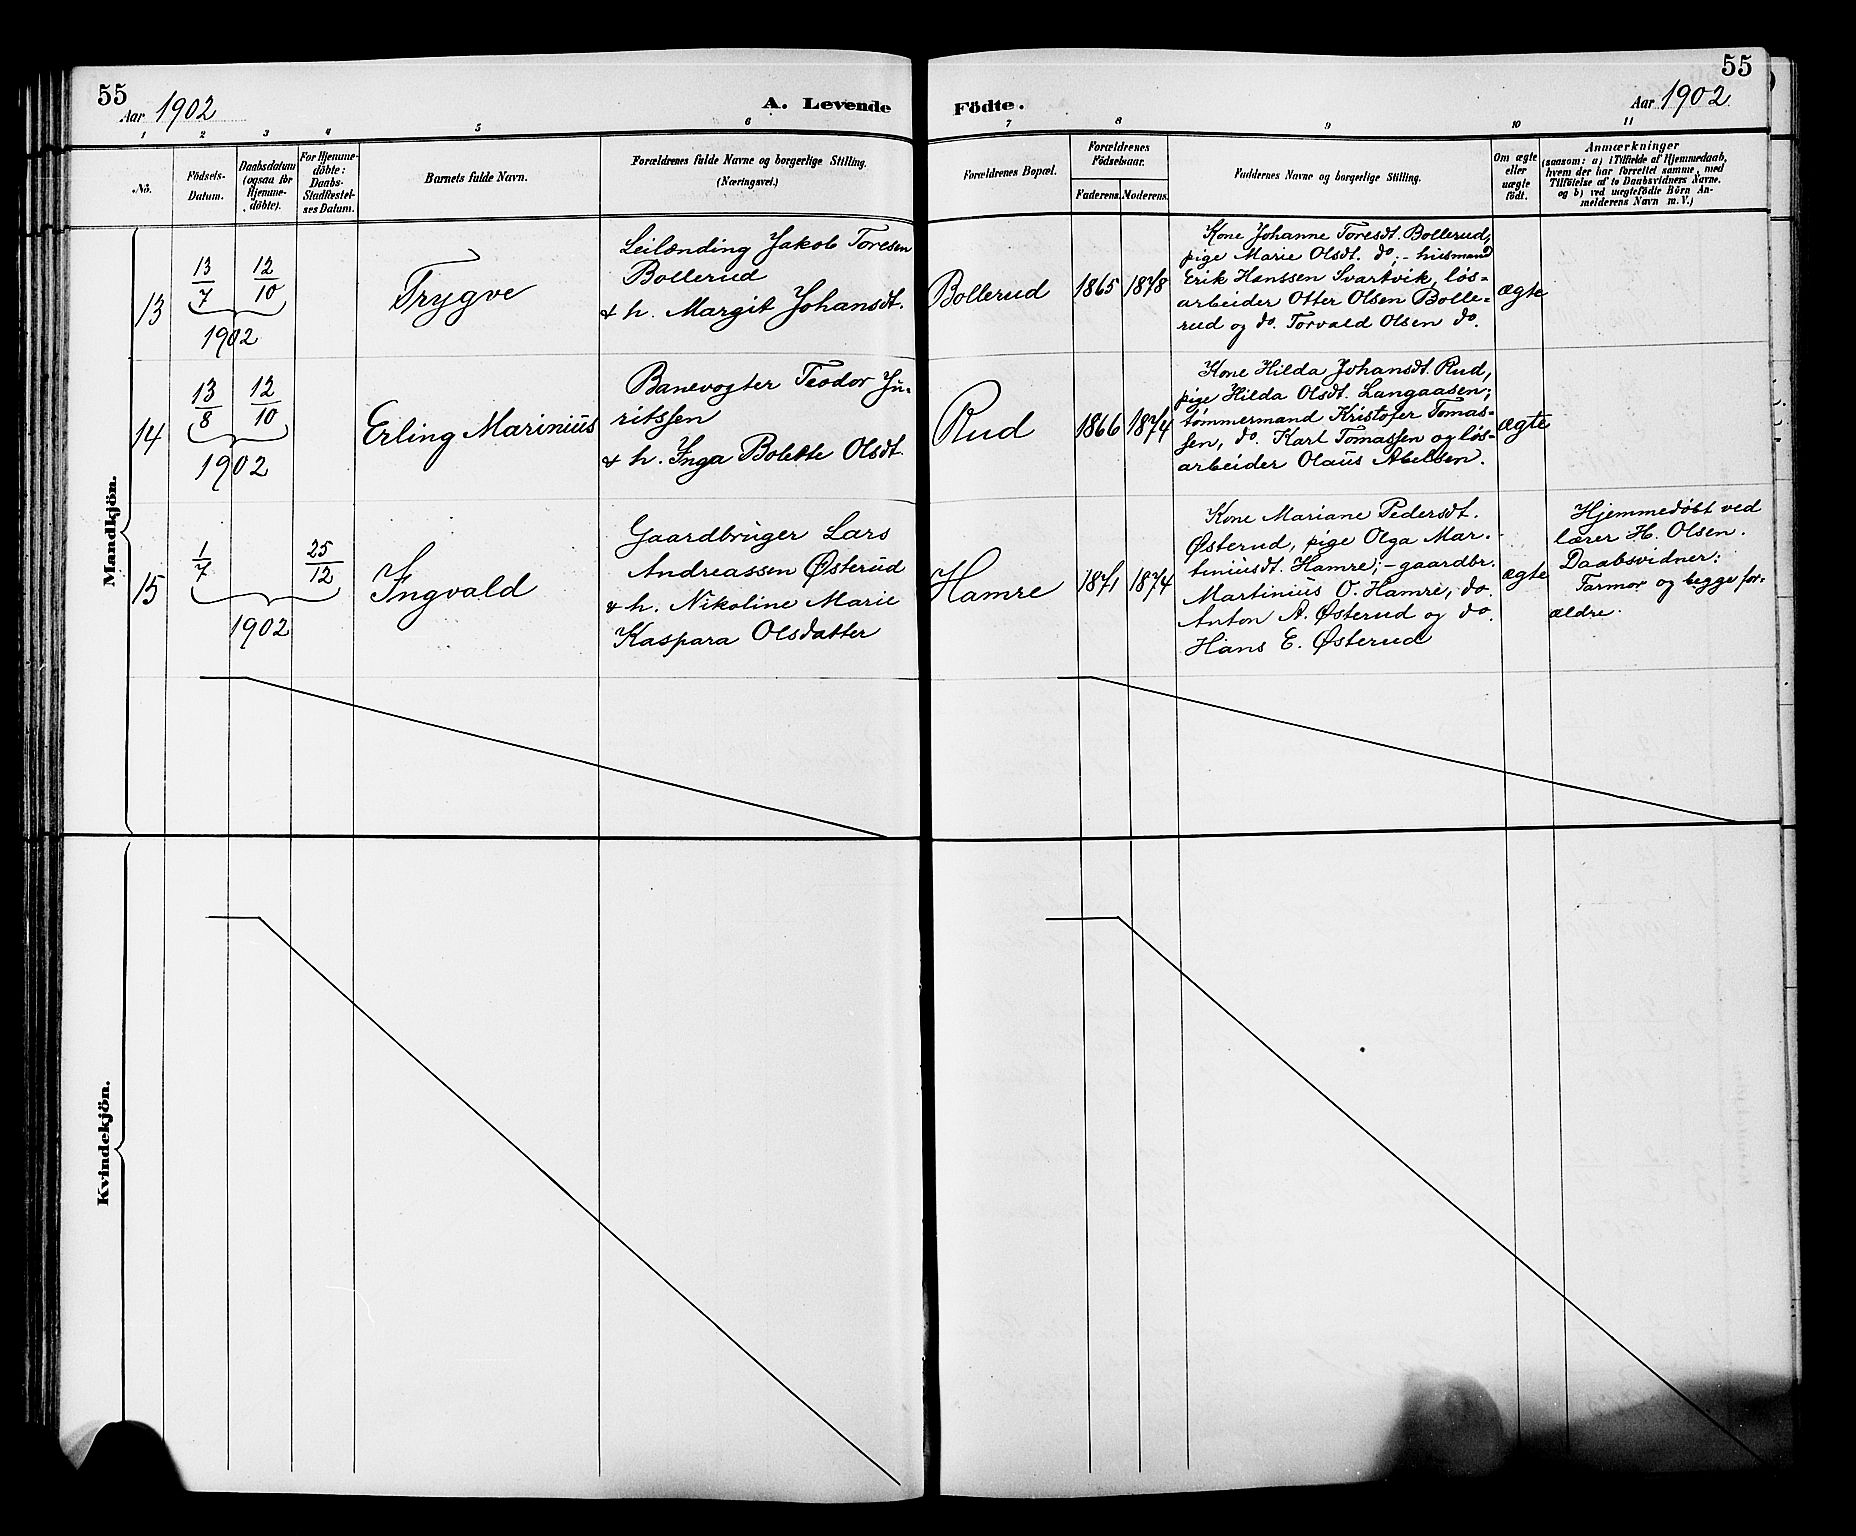 55
Aar 1902
A. Levende
Födte.
55
Aar 1902
1
2
3
4
5
6
7
8
9
10
11
No.
Födsels-
Datum.
Daabsdatum
(ogsaa for
Hjemme-
döbte).
For Hjemme-
döbte:
Daabs-
Stadfæstel-
ses Datum.
Barnets fulde Navn.
Forældrenes fulde Navne og borgerlige Stilling.
(Næringsvei.)
Forældrenes Bopæl.
Forældrenes
Födselsaar.
Faderens.
Moderens.
Faddernes Navne og borgerlige Stilling.
Om ægte
eller
uægte
födt.
Anmærkninger
(saasom: a) i Tilfælde af Hjemmedaab,
hvem der har forrettet samme, med
Tilföielse af to Daabsvidners Navne.
og b) ved uægtefödte Börn An-
melderens Navn m. V.)
Mandkjön.
13
13/7
12/10
1902
Trygve
Leilænding Jakob Toresen
Bollerud
& h. Margit Johansdt.
Bollerud
1865
1878
Kone Johanne Toresdt. Bollerud,
pige Marie Olsdt. do; - husmand
Erik Hanssen Svartvik, løs-
arbeider Otter Olsen Bolle-
rud og do. Torvald Olsen do.
ægte
14
13/8
12/10
1902
Erling Marinius
Banevogter Teodor Ju-
ritssen
& h. Inga Bolette Olsdt.
Rud
1866
1874
Kone Hilda Johansdt. Rud,
pige Hilda Olsdt. Langaasen;
tømmermand Kristofer Tomas-
sen, do. Karl Tomassen og løs-
arbeider Olaus Abelsen.
ægte
15
1/7
25/12
1902
Ingvald
Gaardbruger Lars
Andreassen Østerud
& h. Nikoline Marie
Kaspara Olsdatter
Hamre
1871
1874
Kone Mariane Pedersdt.
Østerud, pige Olga Mar-
tiniusdt. Hamre; - gaardbr.
Martinius O. Hamre, do.
Anton A. Østerud og do.
Hans E. Østerud
ægte
Hjemmedøbt ved
lærer H. Olsen.
Daabsvidner:
Farmor og begge for-
ældre.
Kvindekjön.